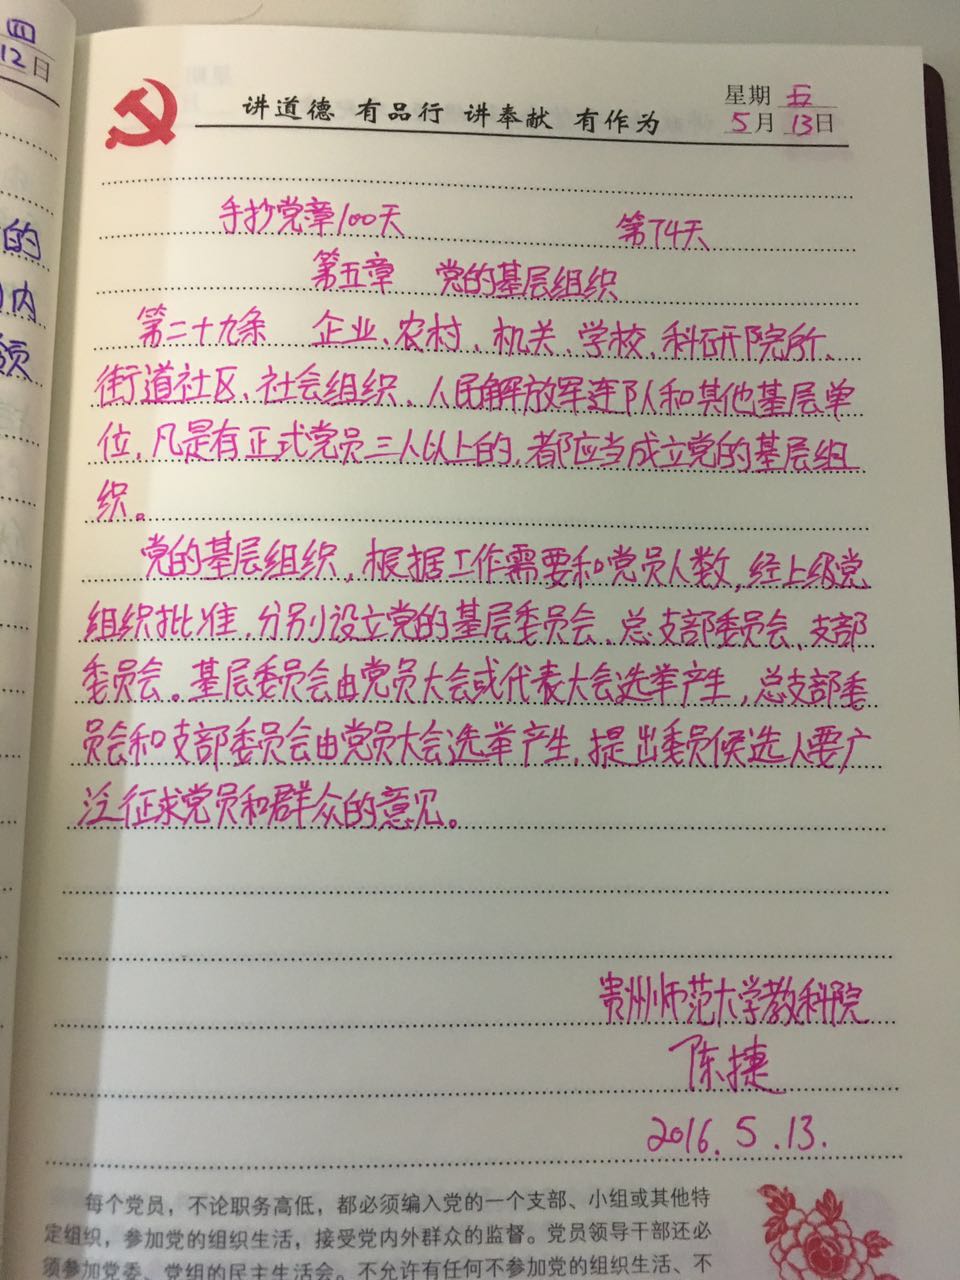 四
12日
的
内
讲道德 有品行 讲奉献 有作为
星期 五
5月 13日
手抄党章100天 第74天
第五章 党的基层组织
第二十九条 企业、农村、机关、学校、科研院所、
街道社区、社会组织、人民解放军连队和其他基层单
位,凡是有正式党员三人以上的,都应当成立党的基层组
织。
党的基层组织,根据工作需要和党员人数,经上级党
组织批准,分别设立党的基层委员会、总支部委员会、支部
委员会。基层委员会由党员大会或代表大会选举产生,总支部委
员会和支部委员会由党员大会选举产生,提出委员候选人要广
泛征求党员和群众的意见。
贵州师范大学教科院
陈捷
2016.5.13.
每个党员,不论职务高低,都必须编入党的一个支部、小组或其他特
定组织,参加党的组织生活,接受党内外群众的监督。党员领导干部还必
须参加党委、党组的民主生活会。不允许有任何不参加党的组织生活、不